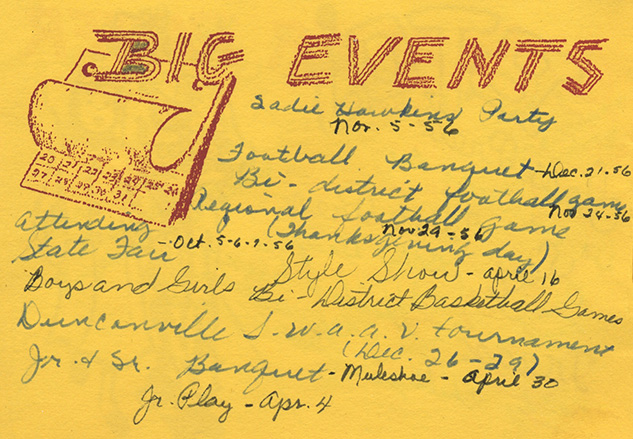 BIG EVENTS
Sadie Hawkins Party
Nov. 5-56
Football Banquet - Dec. 21-56
Bi-district football game
Nov 24-56
Regional football Game
Nov 29-56
(Thanksgiving day)
attending
State Fair - Oct. 5-6-7-56
Style Show - april 16
Boys and Girls Bi-District Basketball Games
Duncanville I.W.A.A.V. tournament
(Dec. 26-29)
Jr. & Sr. Banquet - Muleshoe - april 30
Jr. Play - Apr. 4
20 21 22 23 24 25 26
27 28 29 30 31